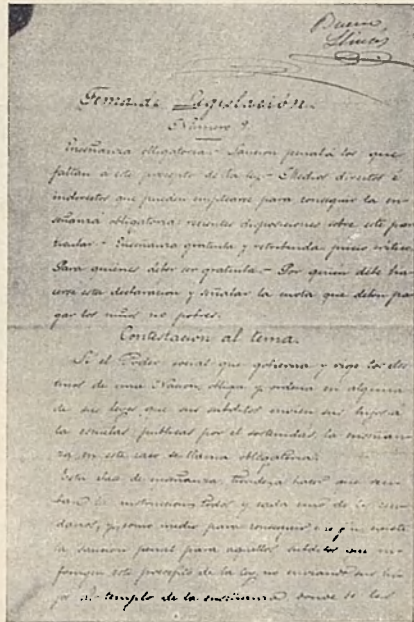 Buena
Llinás
Tema de Legislación.
Número 9.
Enseñanza obligatoria - Sancion penal á los que
faltan á este precepto de la ley. - Medios directos é
indirectos que pueden emplearse para conseguir la en-
señanza obligatoria: recientes disposiciones sobre este par-
ticular - Enseñanza gratuita y retribuida: juicio crítico.
Para quienes debe ser gratuita. - Por quien debe ha-
cerse esta declaracion y señalar la cuota que deben pa-
gar los niños no pobres.
Contestacion al tema.
Si el Poder social que gobierna y rige los des-
tinos de una Nacion, obliga y ordena en alguna
de sus leyes que sus subditos envien sus hijos á
la escuelas publicas por el sostenidas, la enseñan-
za en este caso se llama obligatoria.
Esta clase de enseñanza, tiende á hacer que reci-
ban la instruccion todos y cada uno de los ciuda-
danos, y como medio para conseguir existe
la sancion penal para aquellos subditos que in-
frinjan este precepto de la ley, no enviando sus hi-
jos al templo de la enseñanza donde se les